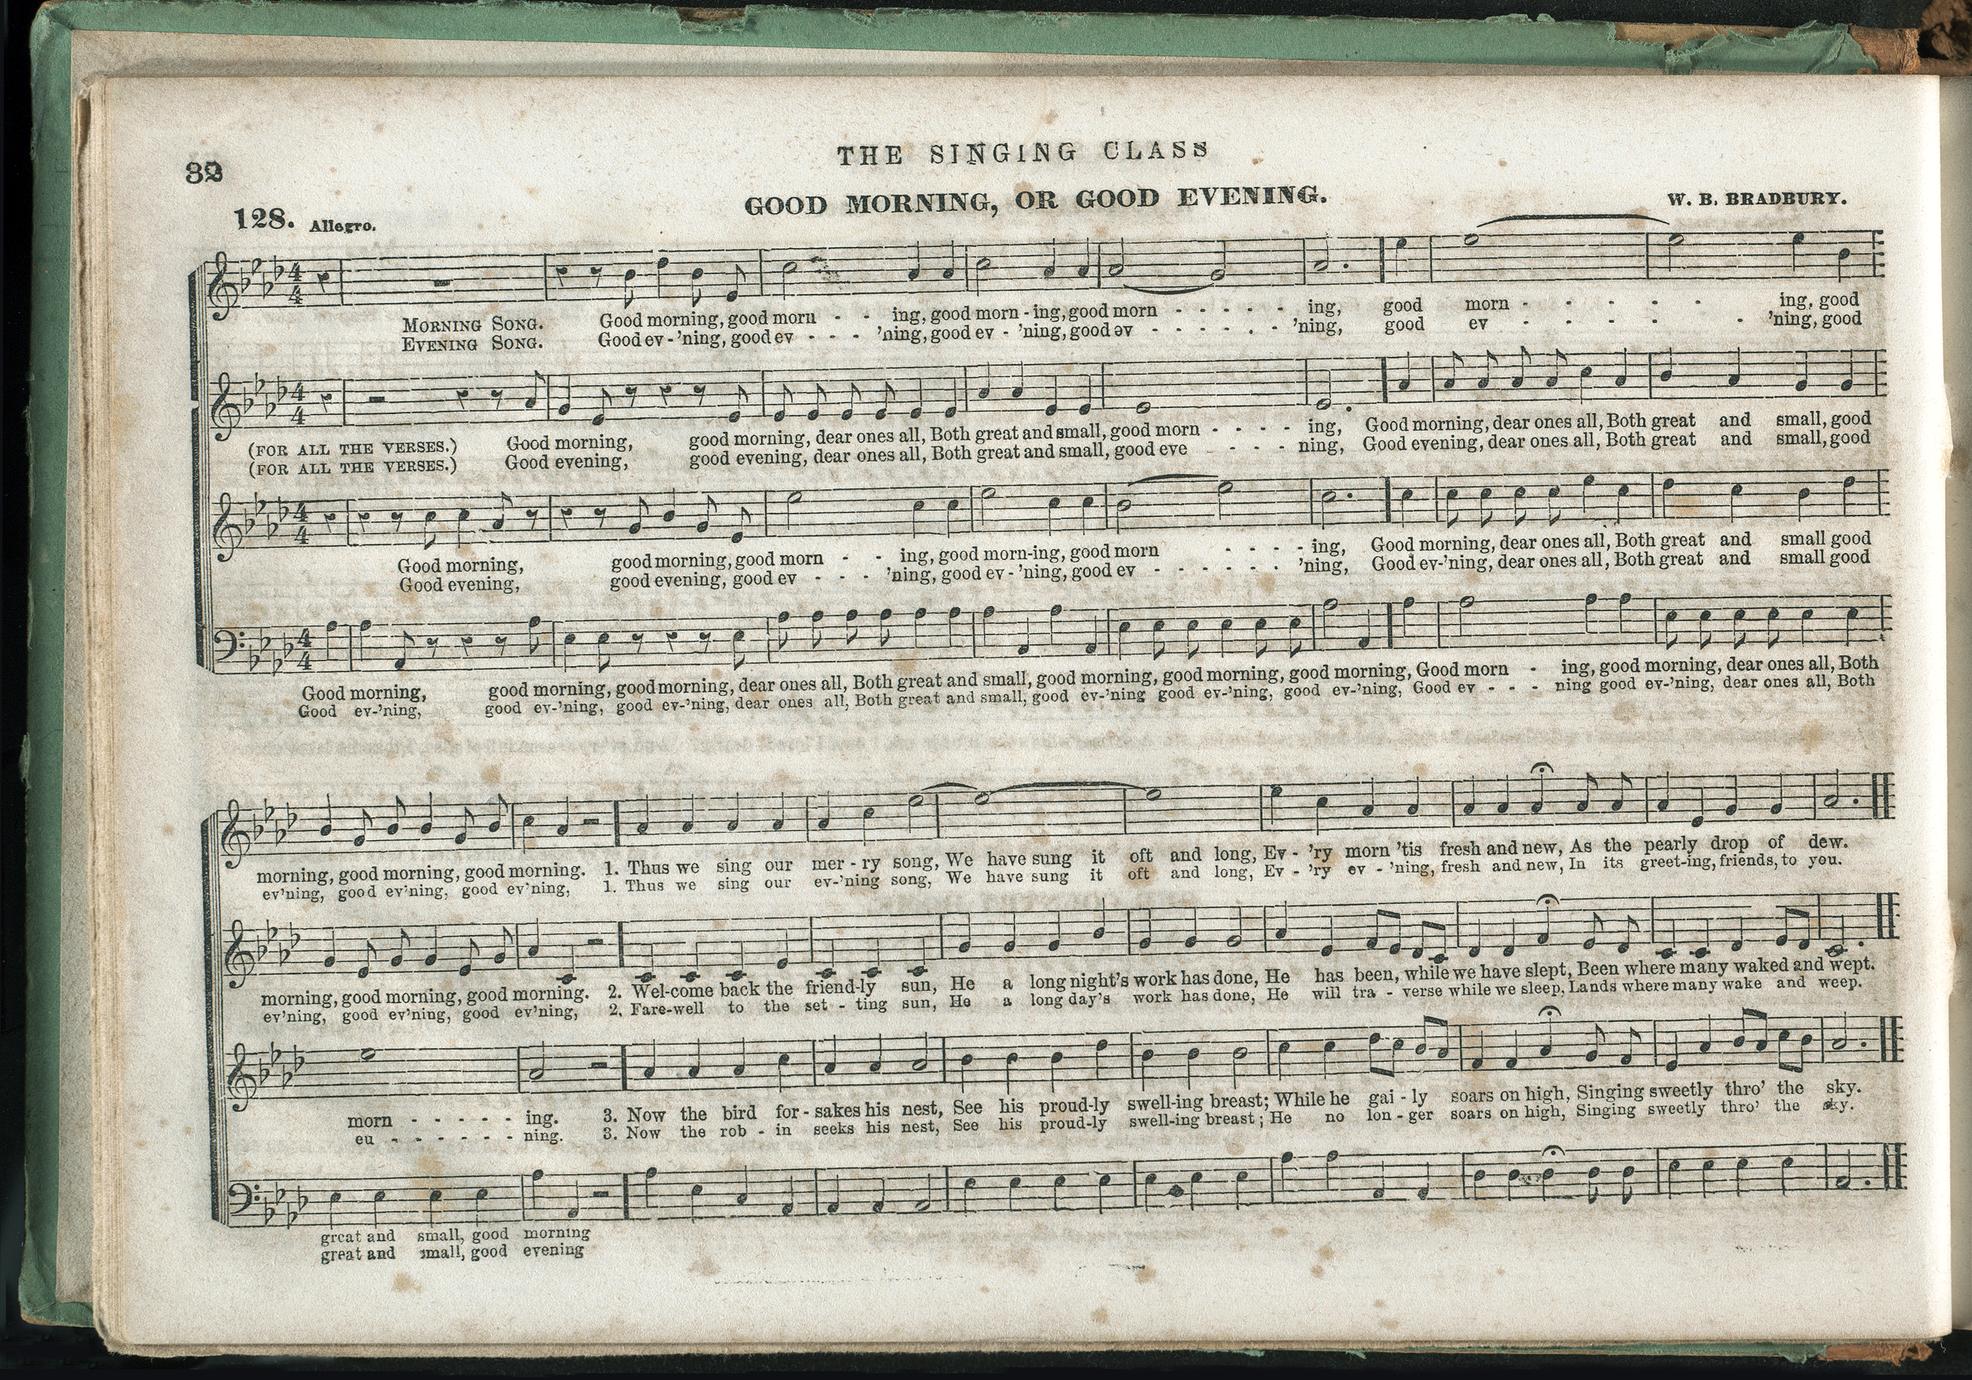 32
THE SINGING CLASS
GOOD MORNING, OR GOOD EVENING.
128. Allegro.
W. B. BRADBURY.
MORNING SONG. Good morning, good morn - - ing, good morn - ing, good morn - - - - - ing, good morn - - - - - - ing, good
EVENING SONG. Good ev - 'ning, good ev - - - 'ning, good ev - 'ning, good ev - - - - - - 'ning, good ev - - - - - - 'ning, good
(FOR ALL THE VERSES.) Good morning, good morning, dear ones all, Both great and small, good morn - - - - ing, Good morning, dear ones all, Both great and small, good
(FOR ALL THE VERSES.) Good evening, good evening, dear ones all, Both great and small, good eve - - - - ning, Good evening, dear ones all, Both great and small, good
Good morning, good morning, good morn - - ing, good morn-ing, good morn - - - - ing, Good morning, dear ones all, Both great and small good
Good evening, good evening, good ev - - - 'ning, good ev - 'ning, good ev - - - - - - 'ning, Good ev-'ning, dear ones all, Both great and small good
Good morning, good morning, good morning, dear ones all, Both great and small, good morning, good morning, good morning, Good morn - ing, good morning, dear ones all, Both
Good ev-'ning, good ev-'ning, good ev-'ning, dear ones all, Both great and small, good ev-'ning good ev-'ning, good ev-'ning, Good ev - - - ning good ev-'ning, dear ones all, Both
morning, good morning, good morning. 1. Thus we sing our mer - ry song, We have sung it oft and long, Ev - 'ry morn 'tis fresh and new, As the pearly drop of dew.
ev'ning, good ev'ning, good ev'ning, 1. Thus we sing our ev-'ning song, We have sung it oft and long, Ev - 'ry ev - 'ning, fresh and new, In its greet-ing, friends, to you.
morning, good morning, good morning. 2. Wel-come back the friend-ly sun, He a long night's work has done, He has been, while we have slept, Been where many waked and wept.
ev'ning, good ev'ning, good ev'ning, 2. Fare-well to the set - ting sun, He a long day's work has done, He will tra - verse while we sleep, Lands where many wake and weep.
morn - - - - - ing. 3. Now the bird for - sakes his nest, See his proud-ly swell-ing breast; While he gai - ly soars on high, Singing sweetly thro' the sky.
eu - - - - - - ning. 3. Now the rob - in seeks his nest, See his proud-ly swell-ing breast; He no lon - ger soars on high, Singing sweetly thro' the sky.
great and small, good morning
great and small, good evening